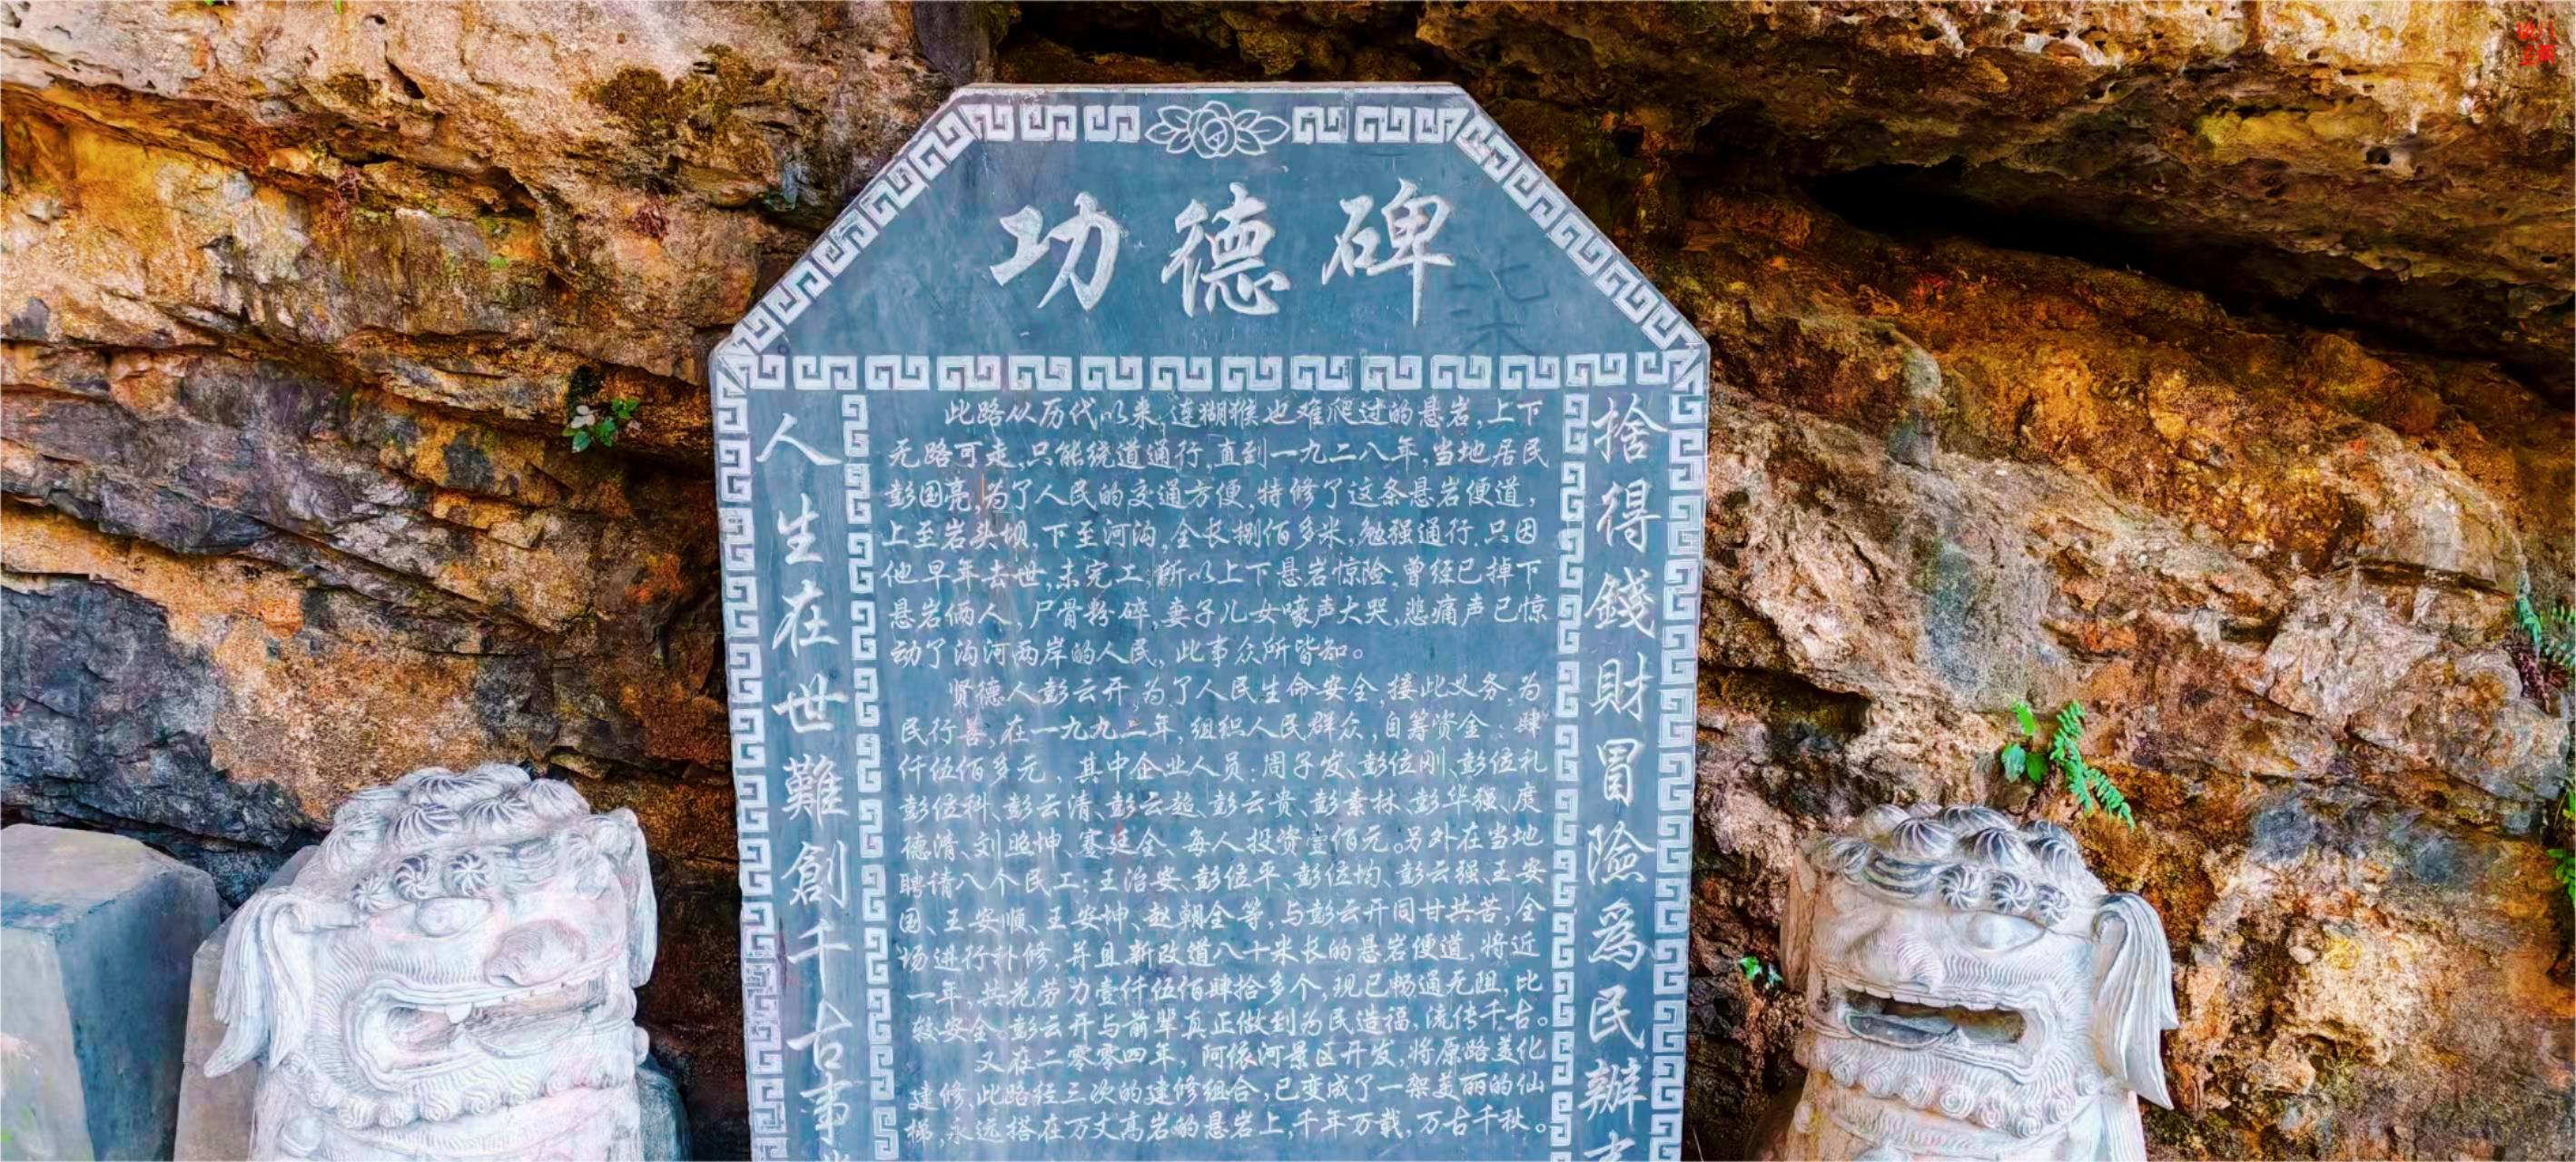 功德碑
捨得錢財冒險為民辦
人生在世難創千古事
此路从历代以来,连猢猴也难爬过的悬岩,上下
无路可走,只能绕道通行,直到一九二八年,当地居民
彭国亮,为了人民的交通方便,特修了这条悬岩便道,
上至岩头坝,下至河沟,全长捌佰多米,勉强通行.只因
他早年去世,未完工,所以上下悬岩惊险,曾经已掉下
悬岩俩人,尸骨粉碎,妻子儿女嚎声大哭,悲痛声已惊
动了沟河两岸的人民,此事众所皆知。
贤德人彭云开,为了人民生命安全,接此义务,为
民行善,在一九九二年,组织人民群众,自筹资金:肆
仟伍佰多元,其中企业人员:周子发、彭位刚、彭位礼
彭位科、彭云清、彭云超、彭云贵、彭素林、彭华强、庹
德清、刘照坤、蹇廷金、每人投资壹佰元。另外在当地
聘请八个民工:王治安、彭位平、彭位均、彭云强、王安
国、王安顺、王安坤、赵朝全等,与彭云开同甘共苦,全
场进行补修,并且新改造八十米长的悬岩便道,将近
一年,共花劳力壹仟伍佰肆拾多个,现已畅通无阻,比
较安全.彭云开与前辈真正做到为民造福,流传千古。
又在二零零四年,阿依河景区开发,将原路美化
建修,此路经三次的建修组合,已变成了一架美丽的仙
梯,永远搭在万丈高岩的悬岩上,千年万载,万古千秋。